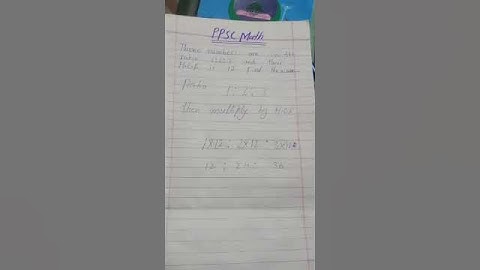 PPSC Math
Three numbers are in the
ratio 1:2:3 and their
H.C.F is 12 find the numbers
Ratio 1 : 2 : 3
Then multiply by H.C.F
1x12 : 2x12 : 3x12
12 : 24 : 36